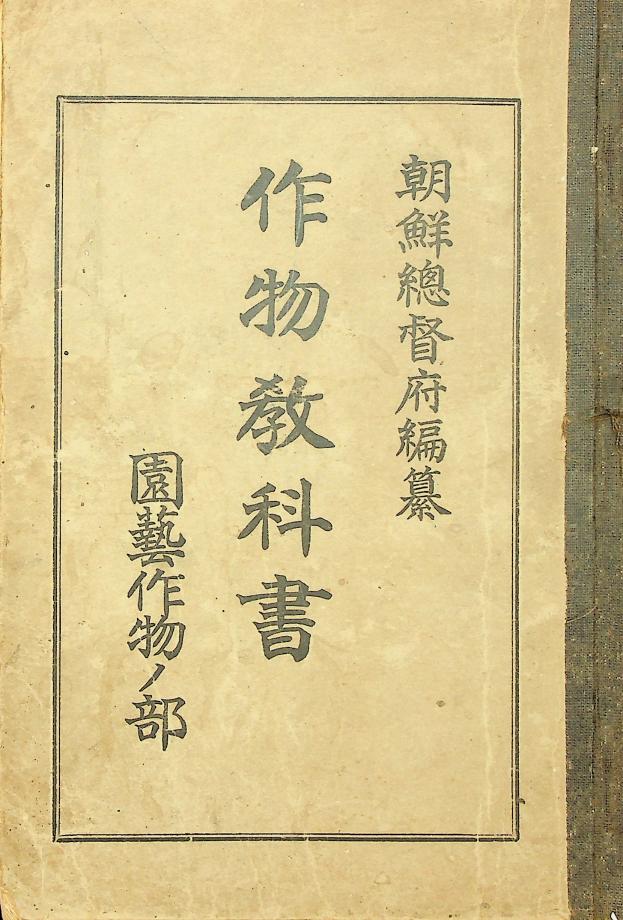 朝鮮總督府編纂
作物敎科書
園藝作物ノ部